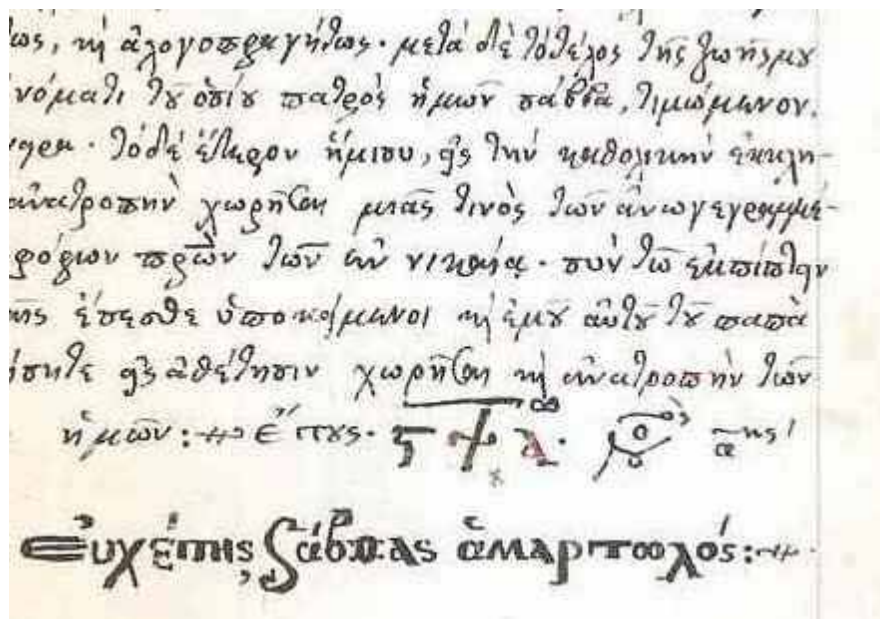 ως, κ αλογοπραγήτως. μετά δὲ τὸ τέλος τῆς ζωῆς μου
νόματι τοῦ ὁσίου πατρὸς ἡμῶν σάββα, τιμώμενον.
τὸ δὲ ἕτερον ἥμισυ, εἰς τὴν καθολικὴν ἐκκλη-
ἀνατροπὴν χωρῆσαι μιᾶς τινὸς τῶν ἀνωγεγραμμέ-
φόρων πρῶν τῶν ἐν νικαία. σὺν τῶ ἐμπίπτειν
ἔπεσθε ὑποκείμενοι κ ἐμοῦ αὐτοῦ τοῦ παπᾶ
εἰς ἀθέτησιν χωρῆσαι κ ἀνατροπὴν τῶν
ἡμῶν: Ἔτους.
Εὐχέτης Σάββας ἁμαρτωλός: